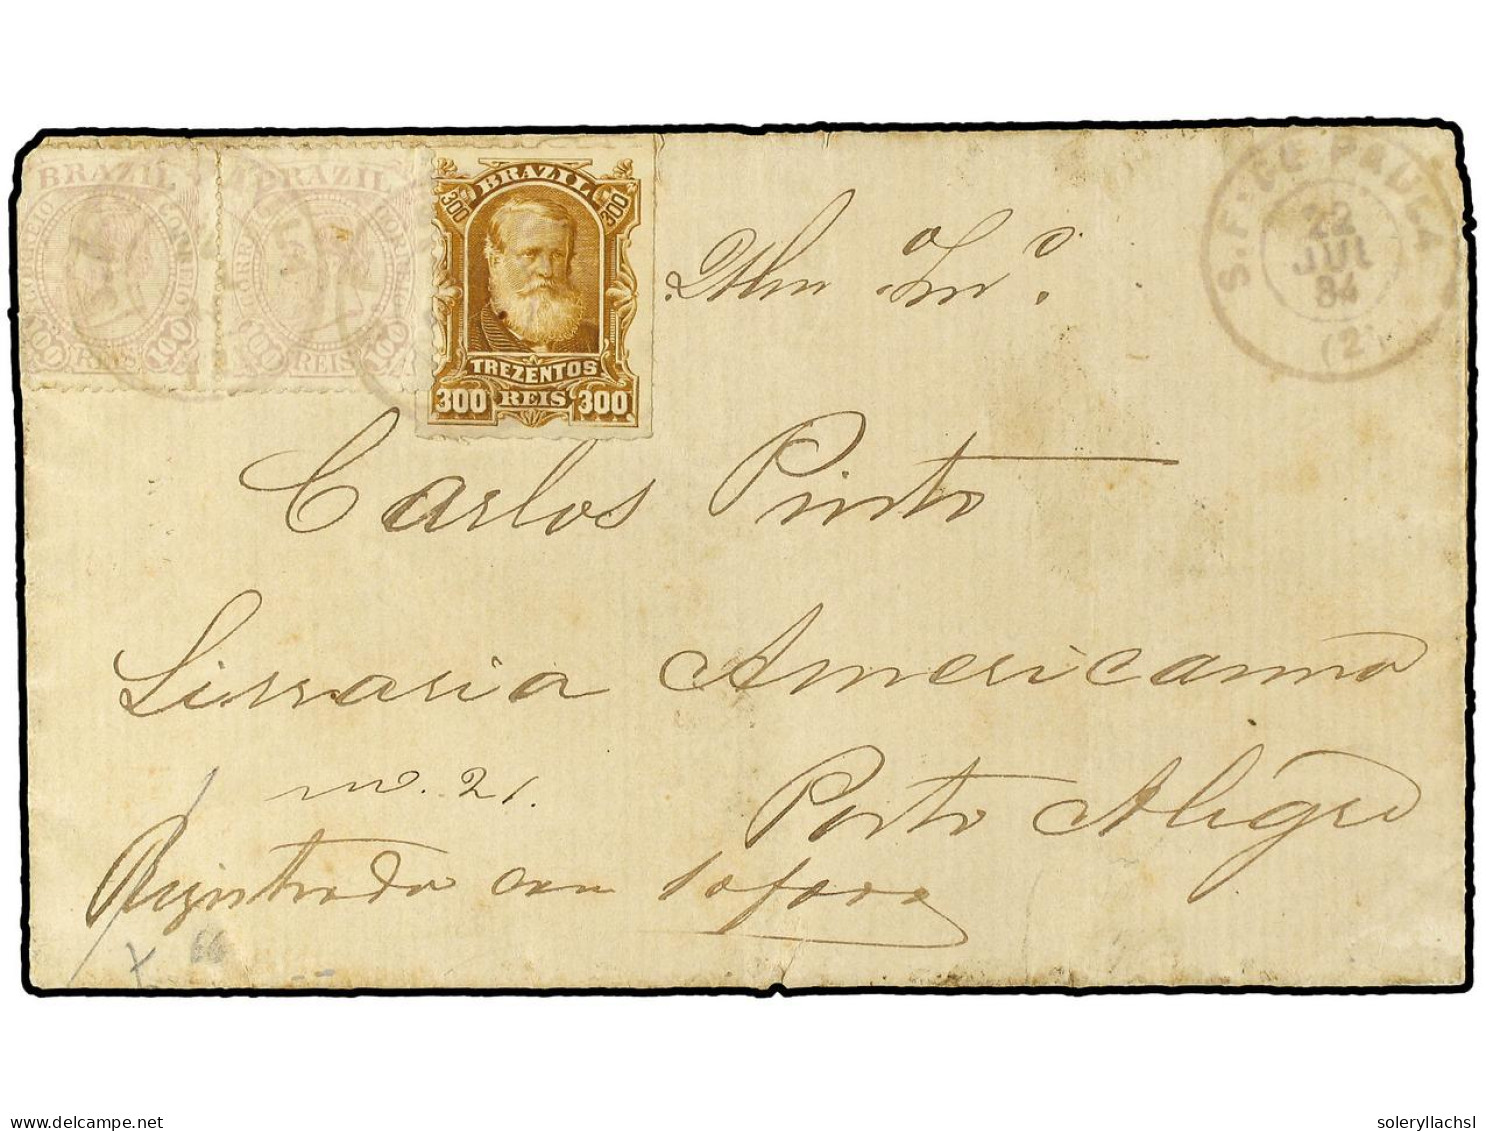 BRAZIL
CORREIO
CORREIO
100 REIS 100
BRAZIL
CORREIO
CORREIO
100 REIS 100
BRAZIL
300 300
TREZENTOS
300 REIS 300
S.F. DE PAULA
22
JUL
84
(2)
Illmo Snr.
Carlos Pinto
Livraria Americanna
no. 21.
Porto Alegre
Registrada com
66
delcampe.net
soleryllachsl